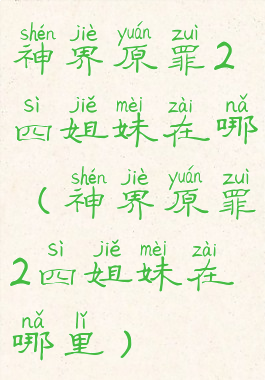 shén jiè yuán zuì
神界原罪2
sì jiě mèi zài nǎ
四姐妹在哪
shén jiè yuán zuì
(神界原罪
sì jiě mèi zài
2四姐妹在
nǎ lǐ
哪里)